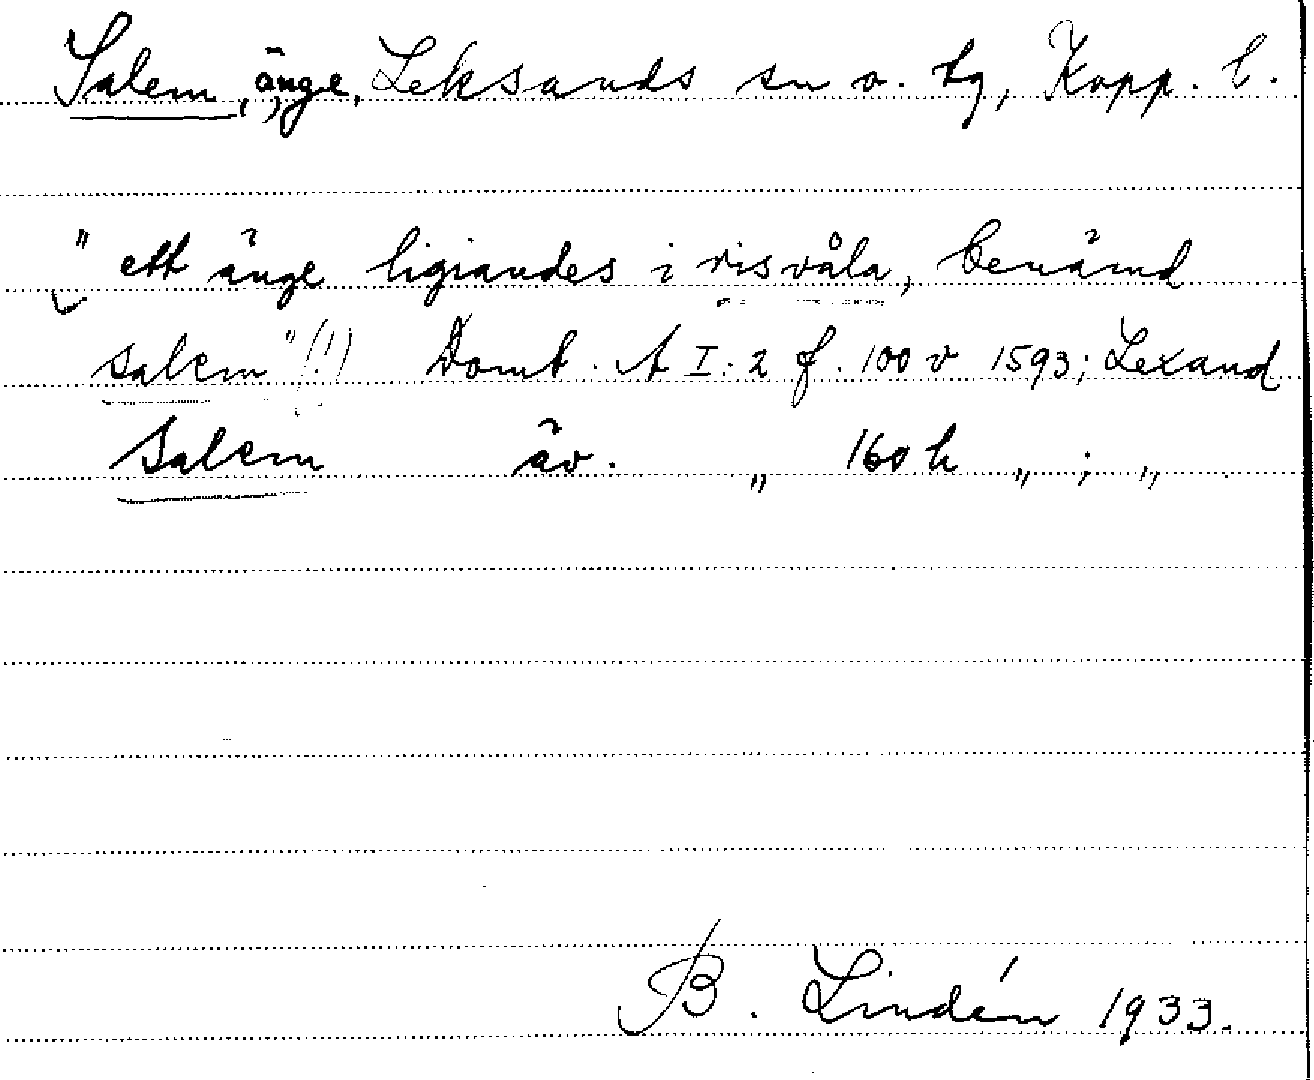 Salem, änge, Leksands sn o. tg, Kopp. l.
"ett änge ligiandes i risvåla, benämd
salem" (!) Domb. A I: 2 f. 100 v 1593; Lexand
Salem äv. " 160 h " ; "
B. Lindén 1933.